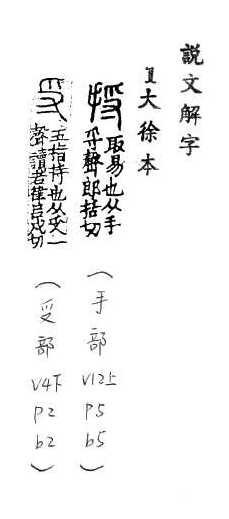 説文解字
1大徐本
捋 取易也从手
寽聲郎括切
(手部 V12上 P5 b5)
寽 五指持也从𠬪一
聲讀若律呂戌切
(受部 V4下 P2 b2)